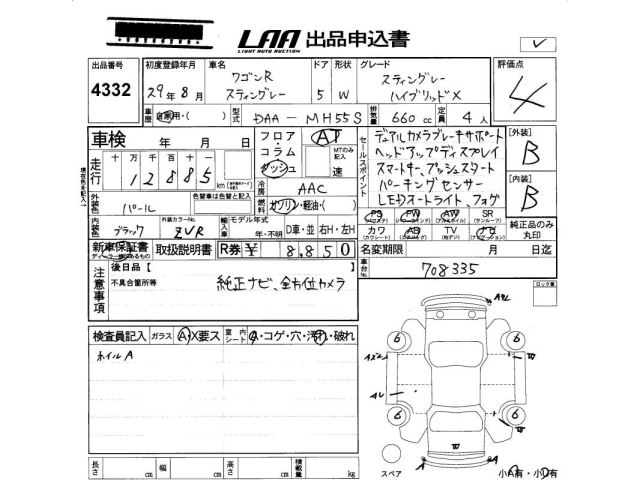 LAA 出品申込書
LIGHT AUTO AUCTION
出品番号
4332
初度登録年月
29年8月
車名
ワゴンR
スティングレー
ドア
5
形状
W
グレード
スティングレー
ハイブリッドX
評価点
4
車歴
自家用・( )
型式
DAA-MH55S
排気量
660 cc
定員
4人
車検 年 月 日
フロア・
コラム
ダッシュ
AT
MTのみ記入
速
セールスポイント
デュアルカメラブレーキサポート
ヘッドアップディスプレイ
スマートキー、プッシュスタート
パーキングセンサー
LEDオートライト、フォグ
[外装]
B
[内装]
B
走行
十 万 千 百 十 一
1 2 8 8 5 km
冷房
AAC
燃料
ガソリン・軽油・( )
外装色
パール
色替車は色替と記入
内装色
ブラック
外装カラーNo.
ZVR
輸入車
モデル年式
年・不明
D車・並
右H・左H
PS AW SR
(パワステ) (サンルーフ)
カワ AB TV
純正品のみ
丸印
新車保証書
取扱説明書
R券 ¥ 8,850
名変期限 月 日迄
注意事項
後日品【 】
不具合箇所等
純正ナビ、全方位カメラ
車台No.
708335
ロック車
検査員記入
ガラス
A・X要ス
室内シート
・コゲ・穴・汚れ・破れ
ホイルA
6
6
6
6
A
長さ cm
幅 cm
高さ cm
積載量 kg
スペア
小A有・小D有